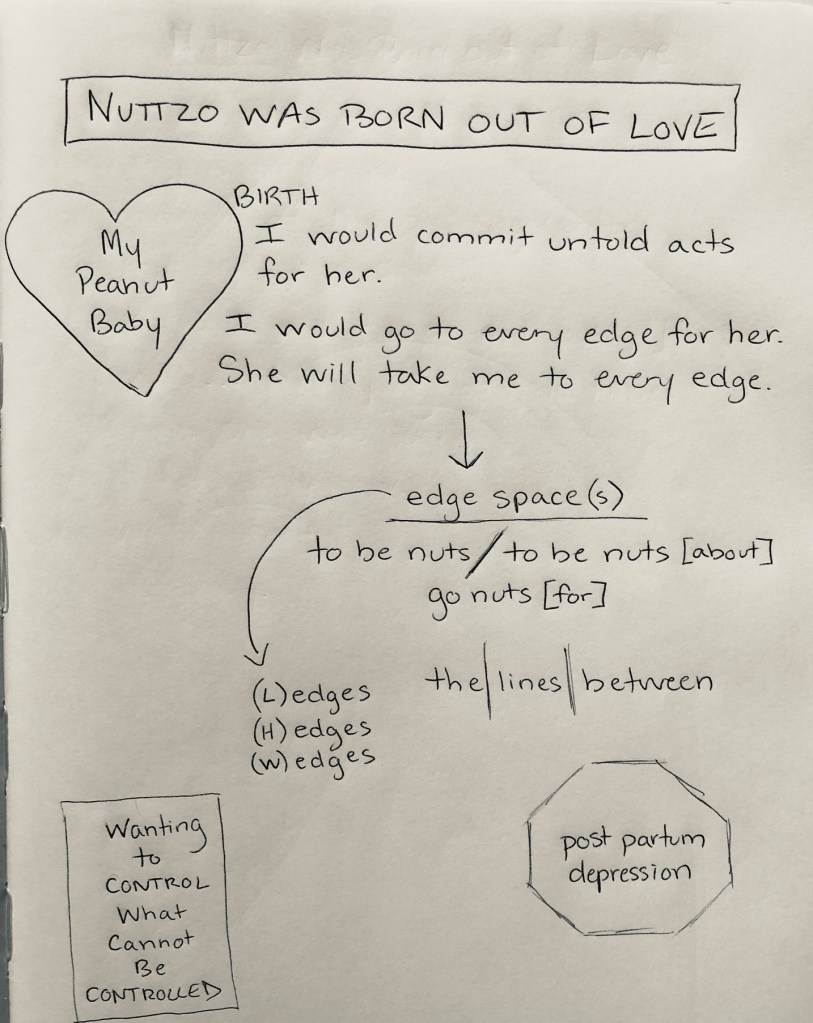 NUTTZO WAS BORN OUT OF LOVE
My
Peanut
Baby
BIRTH
I would commit untold acts
for her.
I would go to every edge for her.
She will take me to every edge.
edge space(s)
to be nuts/to be nuts [about]
go nuts [for]
the|lines||between
(L)edges
(H)edges
(W)edges
Wanting
to
CONTROL
What
Cannot
Be
CONTROLLED
post partum
depression